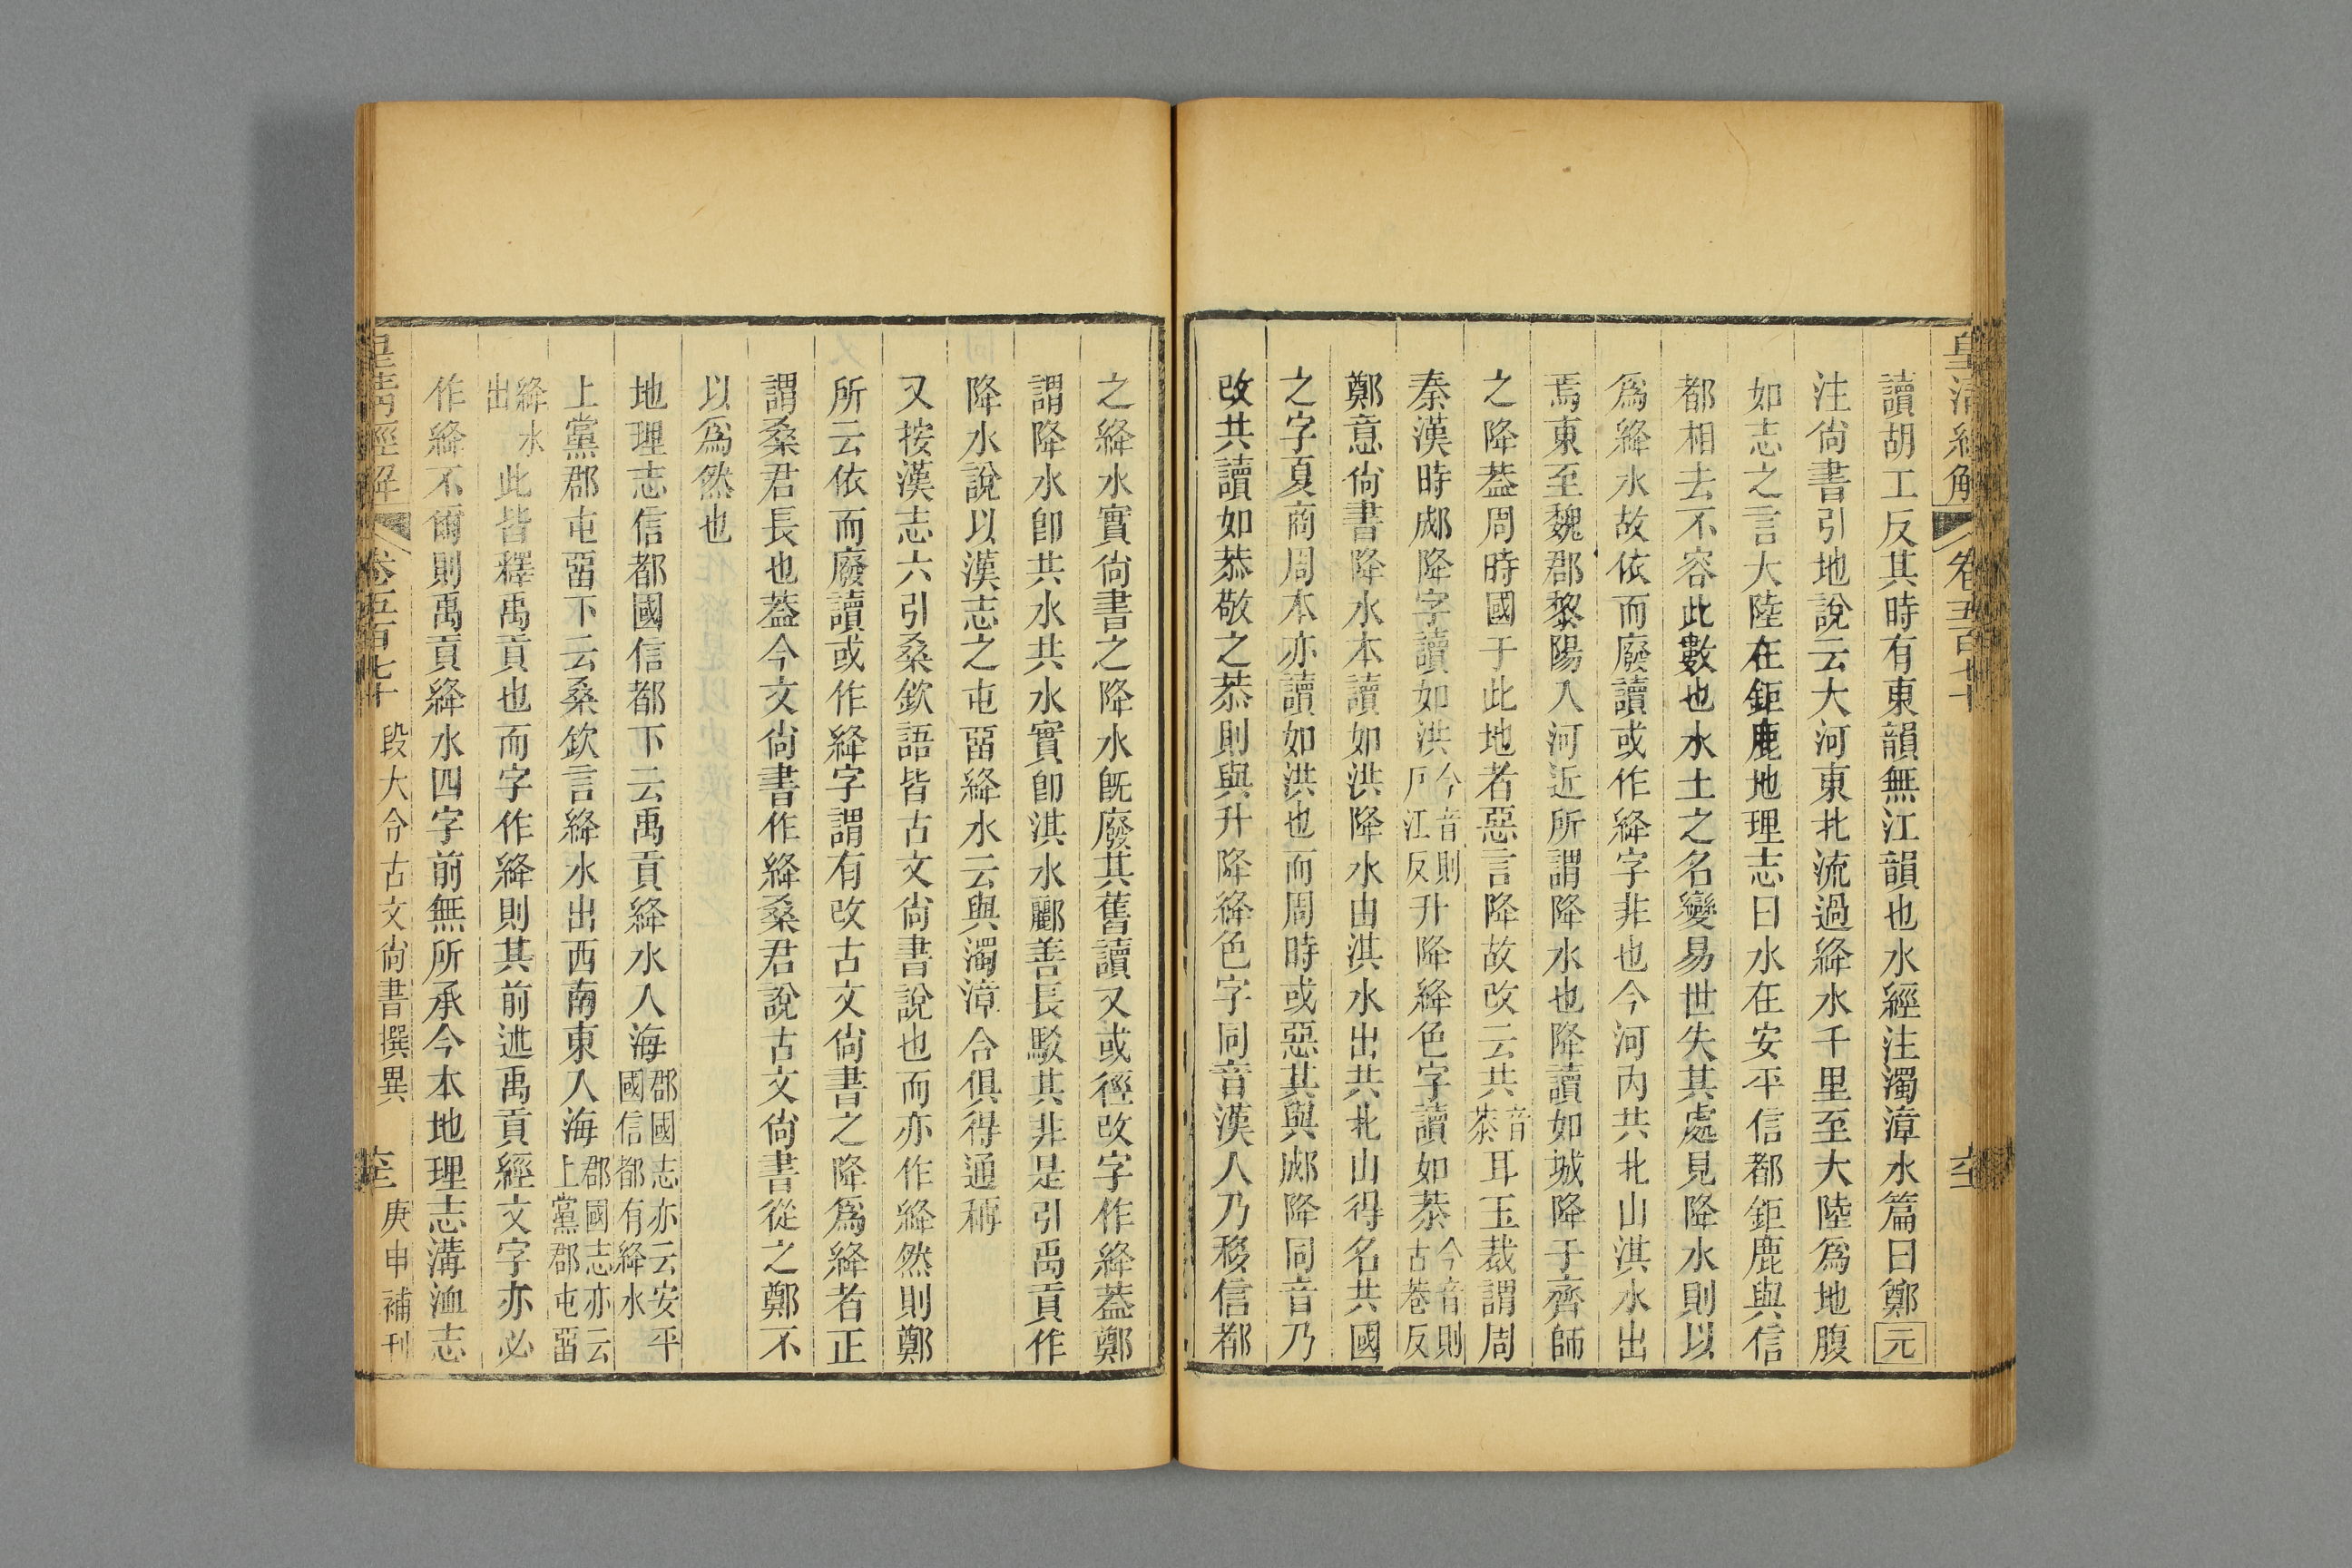 讀胡工反其時有東韻無江韻也水經注濁漳水篇曰鄭元
注尙書引地說云大河東北流過絳水千里至大陸爲地腹
如志之言大陸在鉅鹿地理志曰水在安平信都鉅鹿與信
都相去不容此數也水土之名變易世失其處見降水則以
爲絳水故依而廢讀或作絳字非也今河內共北山淇水出
焉東至魏郡黎陽入河近所謂降水也降讀如城降于齊師
之降葢周時國于此地者惡言降故改云共音恭耳玉裁謂周
秦漢時郕降字讀如洪今音則戶江反升降絳色字讀如恭今音則古巷反
鄭意尙書降水本讀如洪降水由淇水出共北山得名共國
之字夏商周本亦讀如洪也而周時或惡其與郕降同音乃
改共讀如恭敬之恭則與升降絳色字同音漢人乃移信都
之絳水實尙書之降水旣廢其舊讀又或徑改字作絳葢鄭
謂降水卽共水共水實卽淇水酈善長駁其非是引禹貢作
降水說以漢志之屯畱絳水云與濁漳合俱得通稱
又按漢志六引桑欽語皆古文尙書說也而亦作絳然則鄭
所云依而廢讀或作絳字謂有改古文尙書之降爲絳者正
謂桑君長也葢今文尙書作絳桑君說古文尙書從之鄭不
以爲然也
地理志信都國信都下云禹貢絳水入海郡國志亦云安平國信都有絳水
上黨郡屯畱下云桑欽言絳水出西南東入海郡國志亦云上黨郡屯畱
絳水出此皆釋禹貢也而字作絳則其前述禹貢經文字亦必
作絳不爾則禹貢絳水四字前無所承今本地理志溝洫志
皇淸經解 卷五百七十 段大令古文尙書撰異 庚申補刊